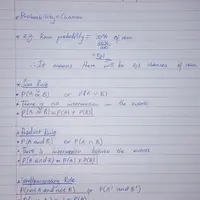 • Probability = Chances
• e.g. Rain probability = 50% of rain
50%
100%
= 0.5
∴ It means there will be 0.5 chances of rain
• Sum Rule
• P(A or B) or P(A ∪ B)
• There is no intersection in the events
• P(A or B) = P(A) + P(B)
• Product Rule
• P(A and B) or P(A ∩ B)
• There is intersection between the events
• P(A and B) = P(A) x P(B)
• Complementary Rule
P(not A and not B) or P(A' and B')